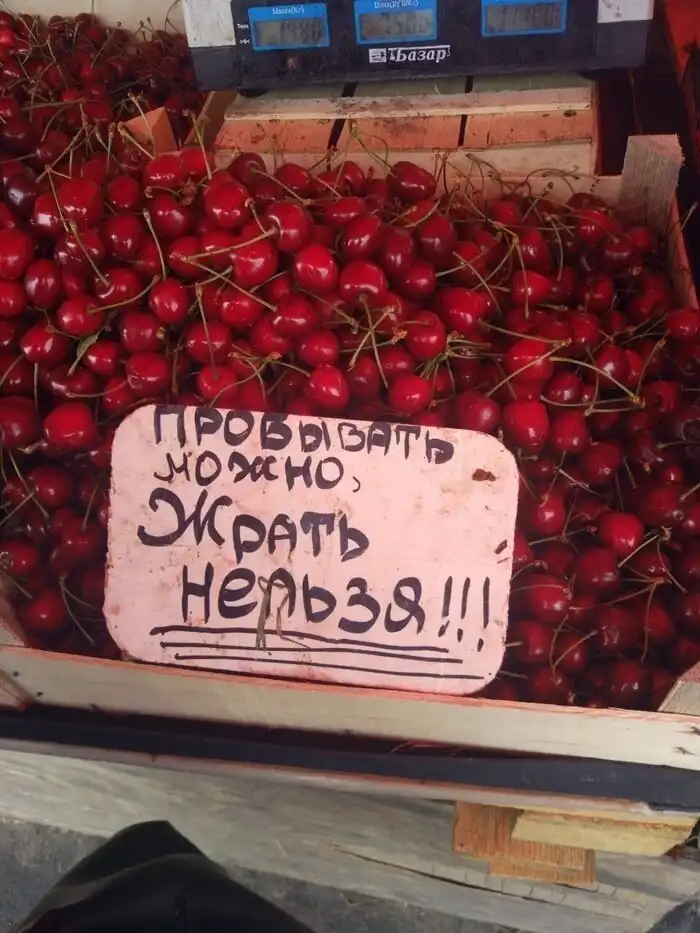 Масса(кг)
тБазар
ПРОБЫВАТЬ
МОЖНО,
ЖРАТЬ
НЕЛЬЗЯ!!!